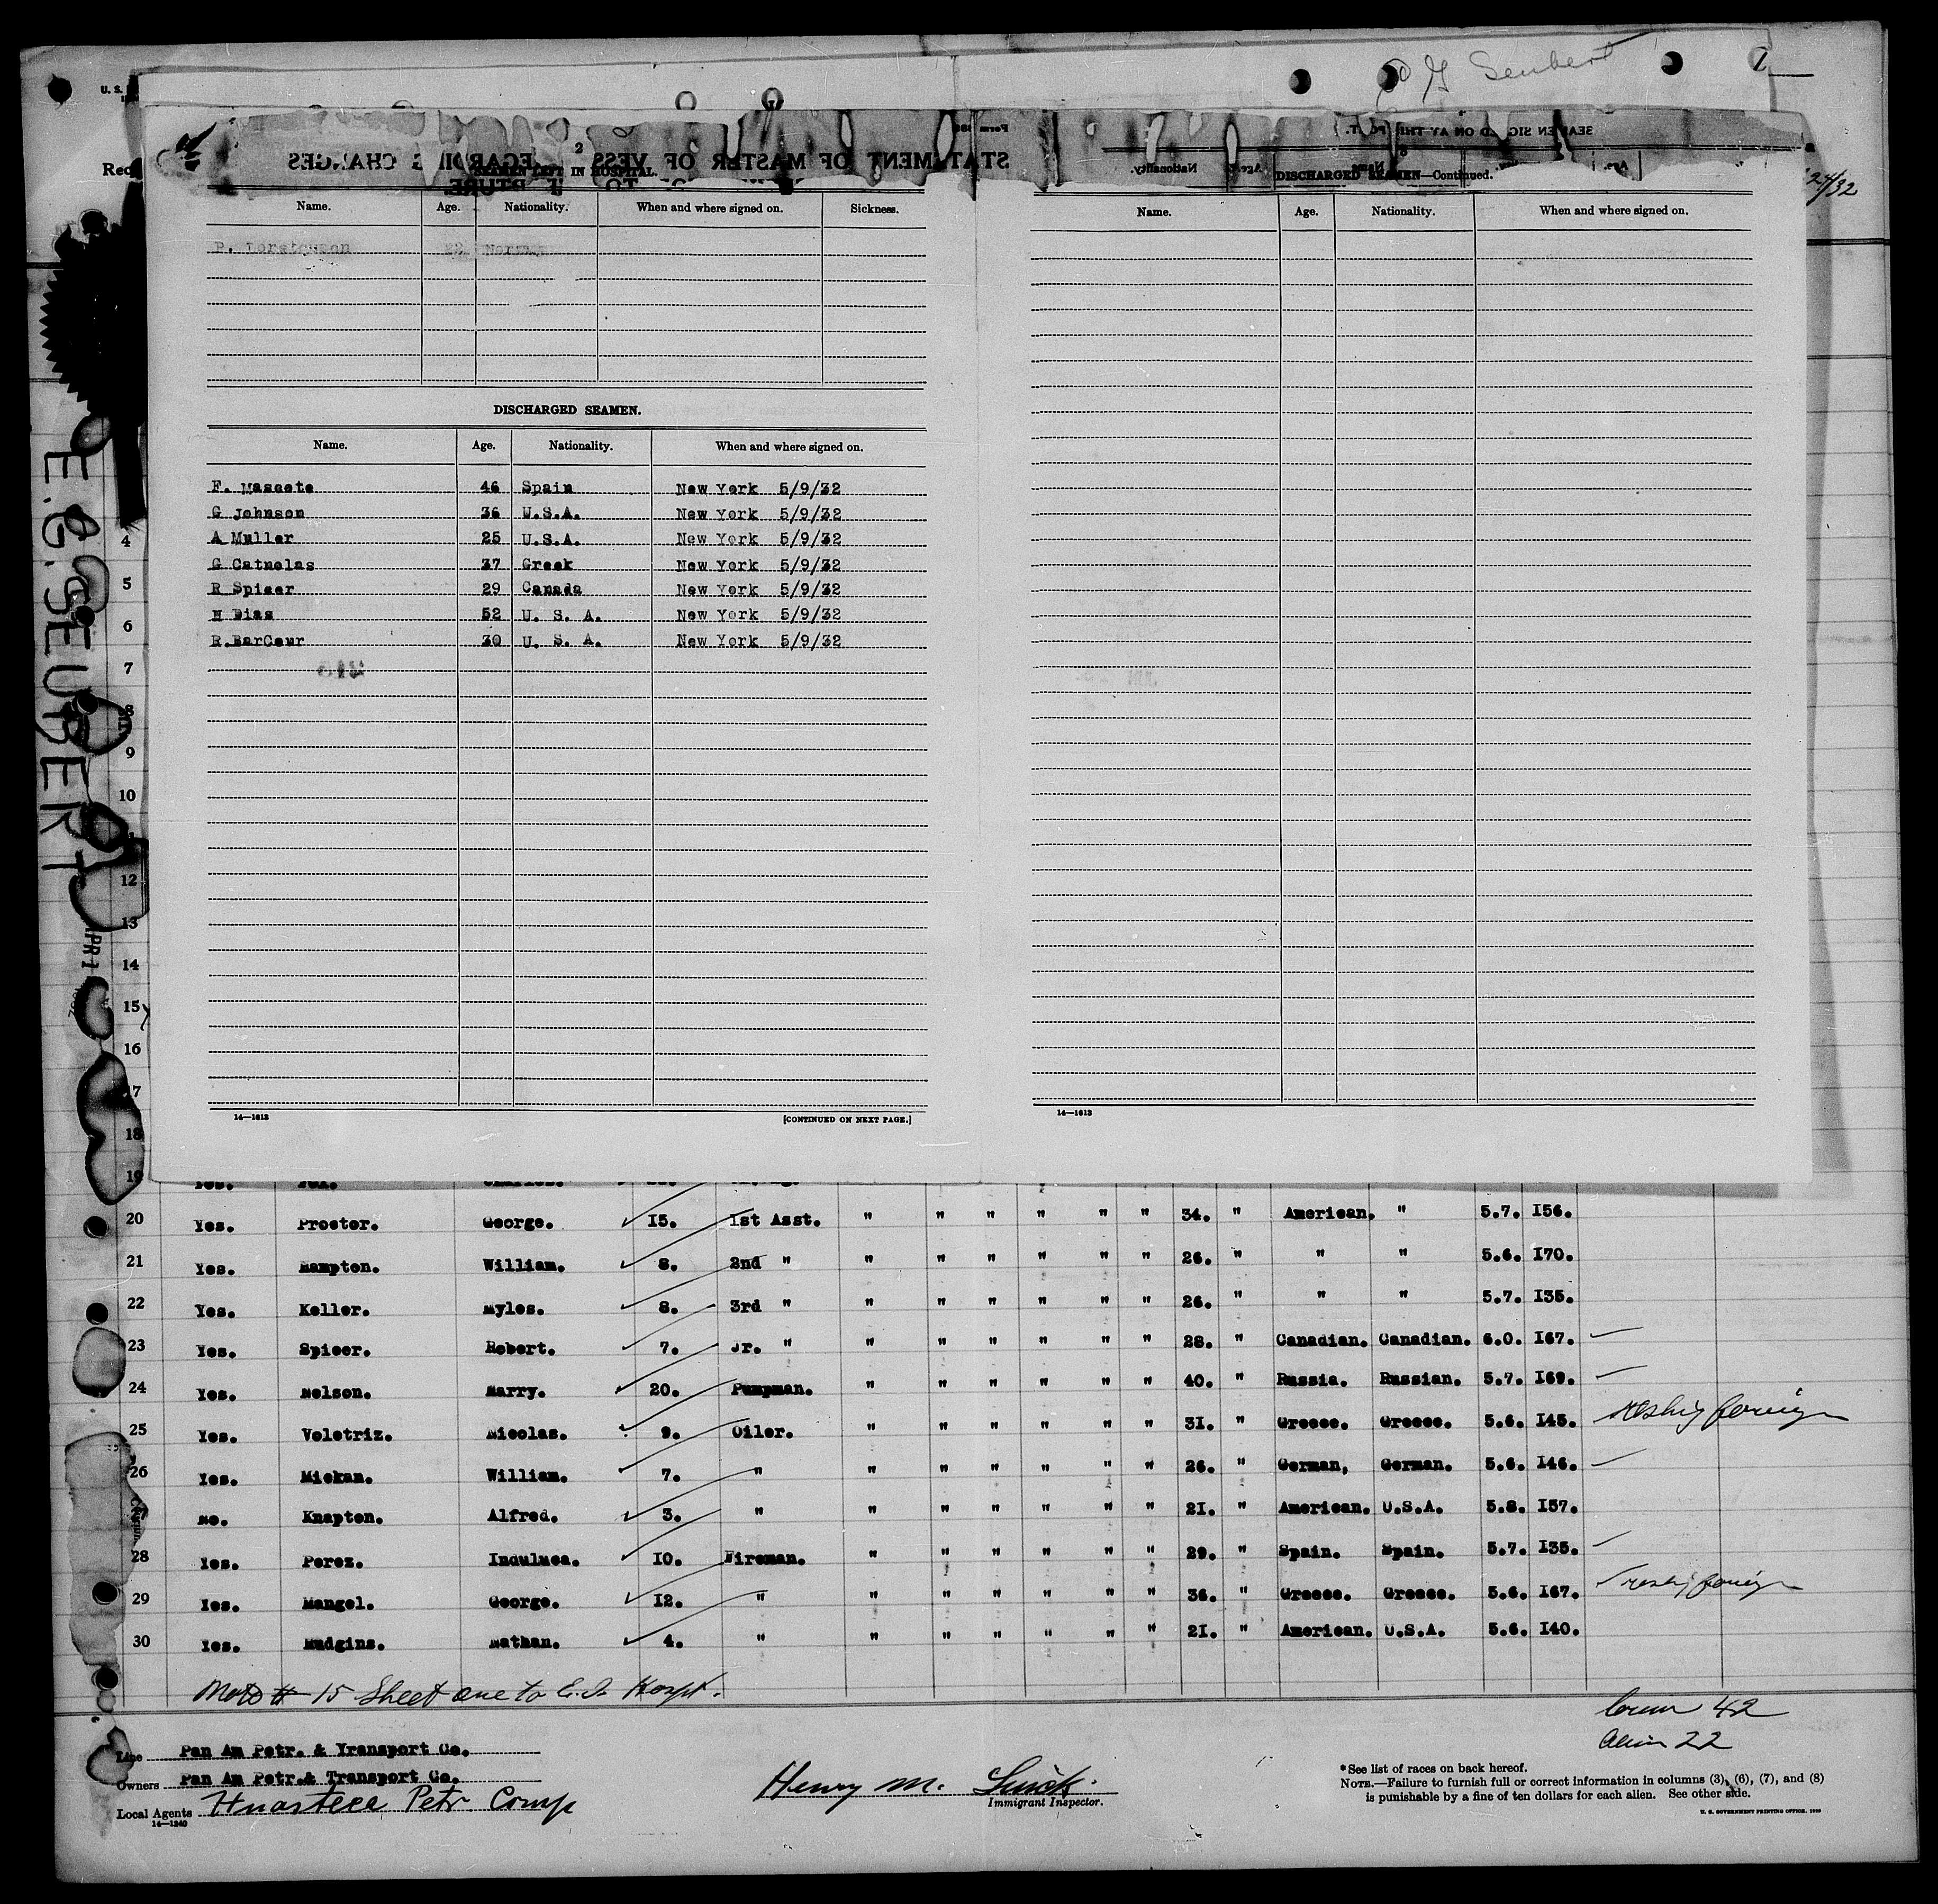 G Seubert 2
U. S.
Rec
24/32
STATEMENT OF MASTER OF VESSEL REGARDING CHANGES
SEAMEN SIGNED ON AT THIS PORT.
Name. Age. Nationality.
2
SEAMEN LEFT IN HOSPITAL.
Name. Age. Nationality. When and where signed on. Sickness.
Norway
DISCHARGED SEAMEN.
Name. Age. Nationality. When and where signed on.
F. Mascote 46 Spain New York 5/9/32
G Johnson 36 U.S.A. New York 5/9/32
A Muller 25 U.S.A. New York 5/9/32
G Catnelas 37 Greek New York 5/9/32
R Spicer 29 Canada New York 5/9/32
H Dias 52 U. S. A. New York 5/9/32
R.BarCeur 30 U. S. A. New York 5/9/32
14—1613 [CONTINUED ON NEXT PAGE.]
3
DISCHARGED SEAMEN—Continued.
Name. Age. Nationality. When and where signed on.
14—1613
E.G. SEUBERT
APR 1
4
5
6
7
8
9
10
12
13
14
15
16
17
18
19 Yes. Charles.
20 Yes. Proctor. George. 15. 1st Asst. " " " " " " 34. " American, " 5.7. I56.
21 Yes. Hampton. William. 8. 2nd " " " " " " " 26. " " " 5.6. I70.
22 Yes. Keller. Myles. 8. 3rd " " " " " " " 26. " " " 5.7. I35.
23 Yes. Spicer. Robert. 7. Jr. " " " " " " " 28. " Canadian. Canadian. 6.0. I67.
24 Yes. Nelson. Harry. 20. Pumpman. " " " " " " 40. " Russia. Russian. 5.7. I69.
25 Yes. Voletriz. Nicolas. 9. Oiler. " " " " " " 31. " Greece. Greece. 5.6. I45. reship foreign
26 Yes. Miekan. William. 7. " " " " " " " 26. " German, German. 5.6. I46.
No. Knapton. Alfred. 3. " " " " " " " 21. " American. U.S.A. 5.8. I57.
28 Yes. Perez. Indulmea. 10. Fireman. " " " " " " 29. " Spain. Spain. 5.7. I35.
29 Yes. Mangel. George. 12. " " " " " " " 36. " Greece. Greece. 5.6. I67. reship foreign
30 Yes. Hudgins. Nathan. 4. " " " " " " " 21. " American. U.S.A. 5.6. I40.
Note # 15 Sheet one to E.I. Hospt.
Crew 42
Alien 22
Line Pan Am Petr. & Transport Co.
Owners Pan Am Petr.& Transport Co.
Local Agents Huasteca Petr Comp
14—1240
Henry M.
Immigrant Inspector.
*See list of races on back hereof.
NOTE.—Failure to furnish full or correct information in columns (3), (6), (7), and (8)
is punishable by a fine of ten dollars for each alien. See other side.
U. S. GOVERNMENT PRINTING OFFICE. 1930